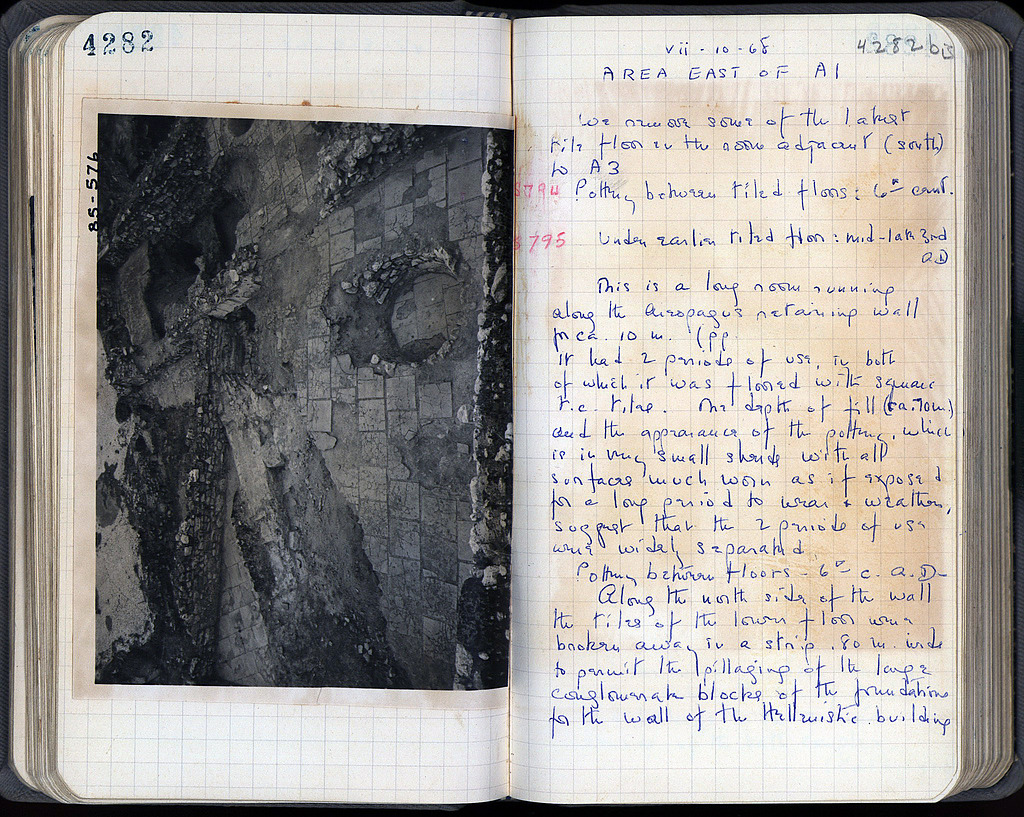 4282
85-576
vii - 10 - 68
4282 bis
AREA EAST OF A1
We remove some of the latest
tile floor in the room adjacent (south)
to A3
Pottery between tiled floors: 6th cent.
795
Under earlier tiled floor: mid-late 3rd
AD
This is a long room running
along the Areopagus retaining wall
for ca. 10 m. (pp.
It had 2 periods of use, in both
of which it was floored with square
t.c. tiles. The depth of fill (ca. .70m.)
and the appearance of the pottery, which
is in very small sherds with all
surfaces much worn as if exposed
for a long period to wear & weather,
suggest that the 2 periods of use
were widely separated.
Pottery between floors - 6th c. A.D.
Along the north side of the wall
the tiles of the lower floor were
broken away in a strip .80 m. wide
to permit the pillaging of the large
conglomerate blocks of the foundations
for the wall of the Hellenistic building